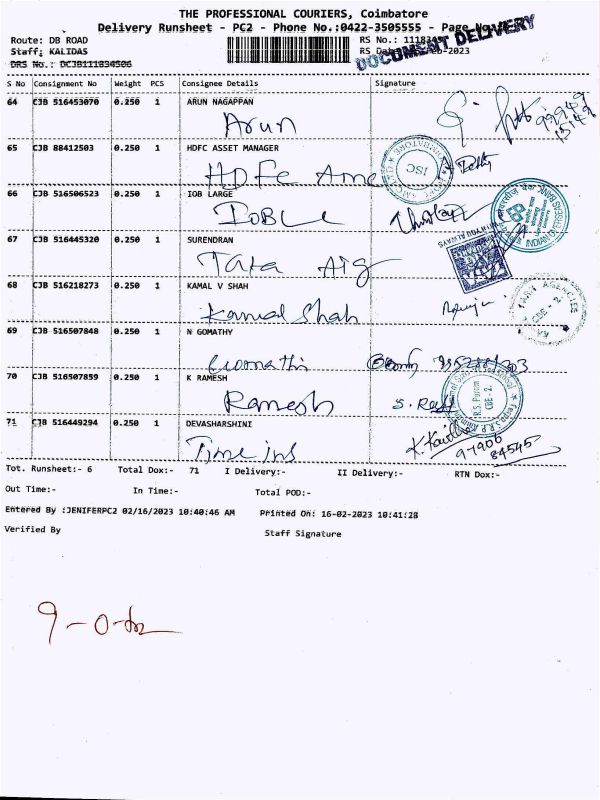 THE PROFESSIONAL COURIERS, Coimbatore
Delivery Runsheet - PC2 - Phone No.:0422-3505555 - Page
Route: DB ROAD
Staff: KALIDAS
DRS No.: DCJB111834506
RS No.:
DOCUMENT DELIVERY
S No Consignment No Weight PCS Consignee Details Signature
64 CJB 516453070 0.250 1 ARUN NAGAPPAN
Arun
65 CJB 88412503 0.250 1 HDFC ASSET MANAGER
HDFC Amc
ISC
66 CJB 516506523 0.250 1 IOB LARGE
IOBLC
67 CJB 516445320 0.250 1 SURENDRAN
Tata Aig
68 CJB 516218273 0.250 1 KAMAL V SHAH
Kamal Shah
AGENCIES
CBE - 2.
69 CJB 516507848 0.250 1 N GOMATHY
Gomathi
70 CJB 516507859 0.250 1 K RAMESH
Ramesh
R.S. Puram
CBE-2.
71 CJB 516449294 0.250 1 DEVASHARSHINI
Time ins
97906
84545
Tot. Runsheet:- 6 Total Dox:- 71 I Delivery:- II Delivery:- RTN Dox:-
Out Time:- In Time:- Total POD:-
Entered By :JENIFERPC2 02/16/2023 10:40:46 AM Printed On: 16-02-2023 10:41:28
Verified By Staff Signature